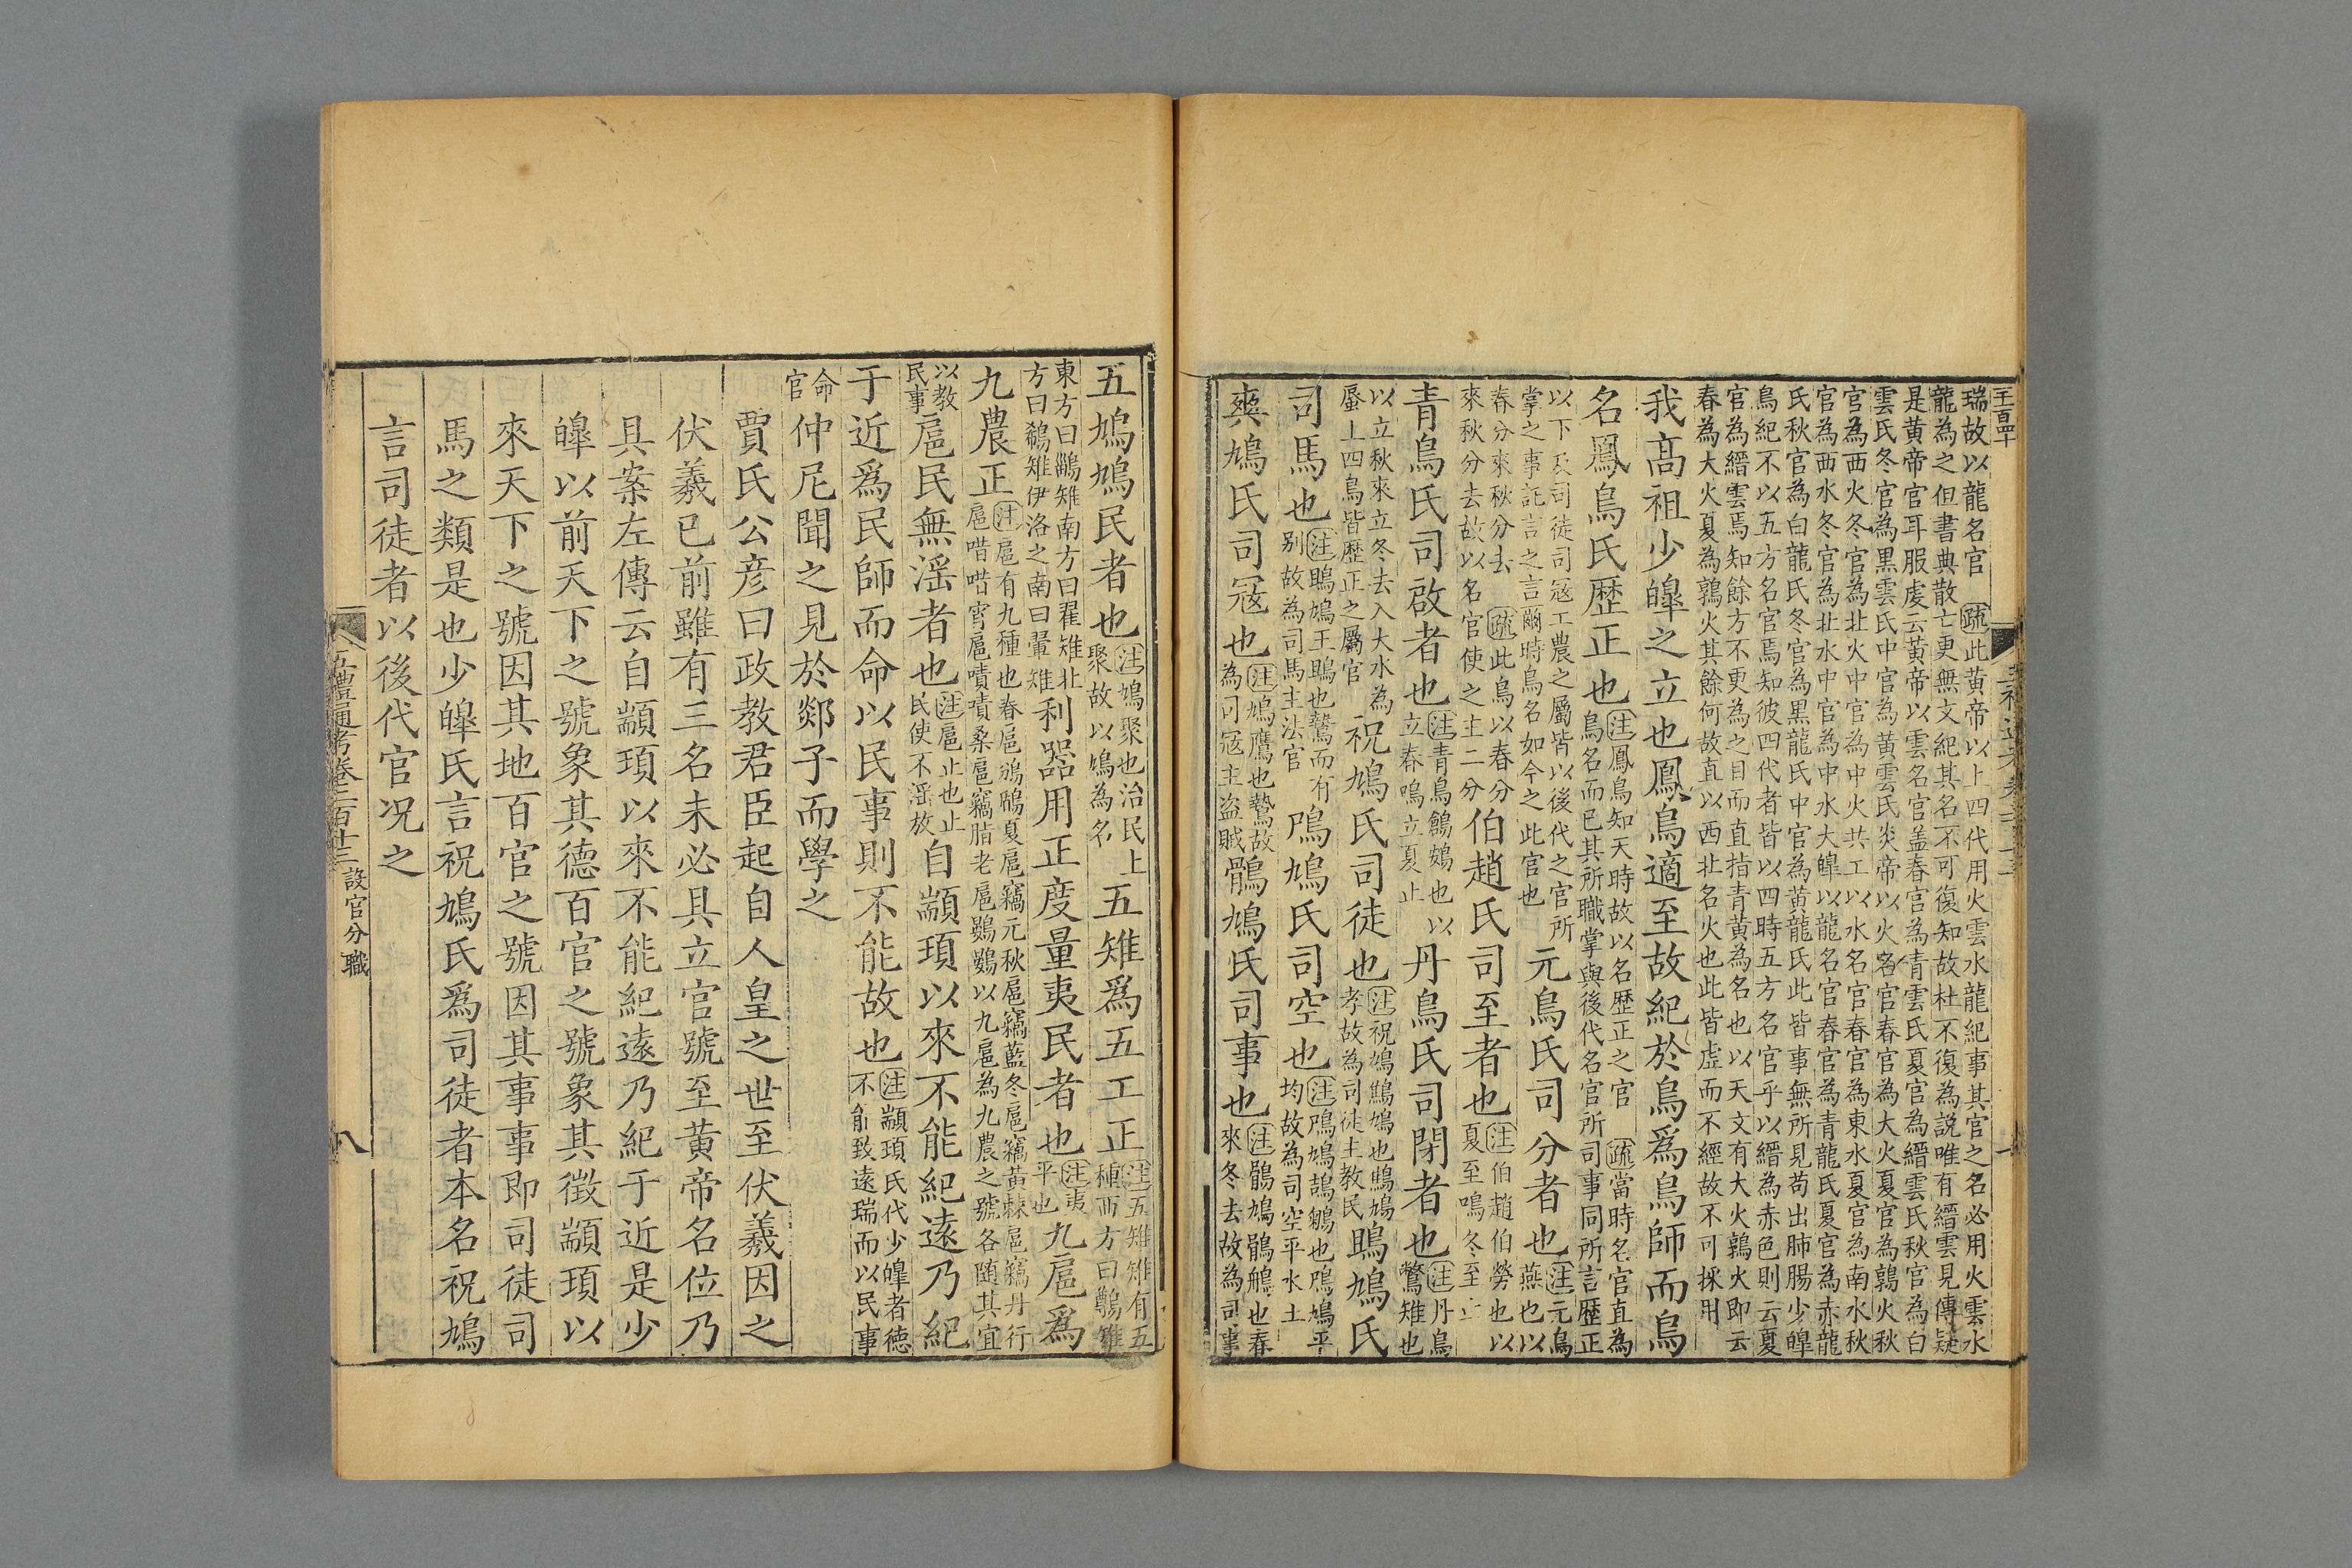 瑞故以龍名官 疏此黄帝以上四代用火雲水龍紀事其官之名必用火雲水
龍為之但書典散亡更無文紀其名不可復知故杜不復為説唯有縉雲見傳疑
是黄帝官耳服䖍云黄帝以雲名官盖春官為青雲氏夏官為縉雲氏秋官為白
雲氏冬官為黒雲氏中官為黄雲氏炎帝以火名官春官為大火夏官為鶉火秋
官為西火冬官為北火中官為中火共工以水名官春官為東水夏官為南水秋
官為西水冬官為北水中官為中水大皥以龍名官春官為青龍氏夏官為赤龍
氏秋官為白龍氏冬官為黒龍氏中官為黄龍氏此皆事無所見苟出肺腸少皥
鳥紀不以五方名官焉知彼四代者皆以四時五方名官乎以縉為赤色則云夏
官為縉雲焉知餘方不更為之目而直指青黄為名也以天文有大火鶉火即云
春為大火夏為鶉火其餘何故直以西北名火也此皆虚而不經故不可採用
我高祖少皥之立也鳳鳥適至故紀於鳥爲鳥師而鳥
名鳳鳥氏歴正也注鳳鳥知天時故以名歴正之官 疏當時名官直為鳥名而已其所職掌與後代名官所司事同所言歴正
以下及司徒司寇工農之屬皆以後代之官所掌之事託言之言爾時鳥名如今之此官也元鳥氏司分者也注元鳥燕也以
春分來秋分去 疏此鳥以春分來秋分去故以名官使之主二分伯趙氏司至者也注伯趙伯勞也以夏至鳴冬至止
青鳥氏司啟者也注青鳥鶬鴳也以立春鳴立夏止丹鳥氏司閉者也注丹鳥鷩雉也
以立秋來立冬去入大水為蜃上四鳥皆歴正之屬官祝鳩氏司徒也注祝鳩鷦鳩也鷦鳩孝故為司徒主教民鴡鳩氏
司馬也注鴡鳩王鴡也鷙而有别故為司馬主法官鳲鳩氏司空也注鳲鳩鴶鵴也鳲鳩平均故為司空平水土
爽鳩氏司寇也注爽鳩鷹也鷙故為司寇主盗賊鶻鳩氏司事也注鶻鳩鶻鵃也春來冬去故為司事
五鳩鳩民者也注鳩聚也治民上聚故以鳩為名五雉爲五工正注五雉雉有五種西方曰鷷雉
東方曰鶅雉南方曰翟雉北方曰鵗雉伊洛之南曰翬雉利器用正度量夷民者也注夷平也九扈爲
九農正注扈有九種也春扈鳻鶞夏扈竊元秋扈竊藍冬扈竊黄棘扈竊丹行扈唶唶宵扈嘖嘖桑扈竊脂老扈鷃鷃以九扈為九農之號各随其宜
以教民事扈民無淫者也注扈止也止民使不淫放自顓頊以來不能紀遠乃紀
于近爲民師而命以民事則不能故也注顓頊氏代少皥者徳不能致遠瑞而以民事
命官仲尼聞之見於郯子而學之
賈氏公彦曰政教君臣起自人皇之世至伏羲因之
伏羲已前雖有三名未必具立官號至黄帝名位乃
具案左傳云自顓頊以來不能紀遠乃紀于近是少
皥以前天下之號象其德百官之號象其徵顓頊以
來天下之號因其地百官之號因其事事即司徒司
馬之類是也少皥氏言祝鳩氏爲司徒者本名祝鳩
言司徒者以後代官况之
五禮通考卷二百十三 設官分職 八